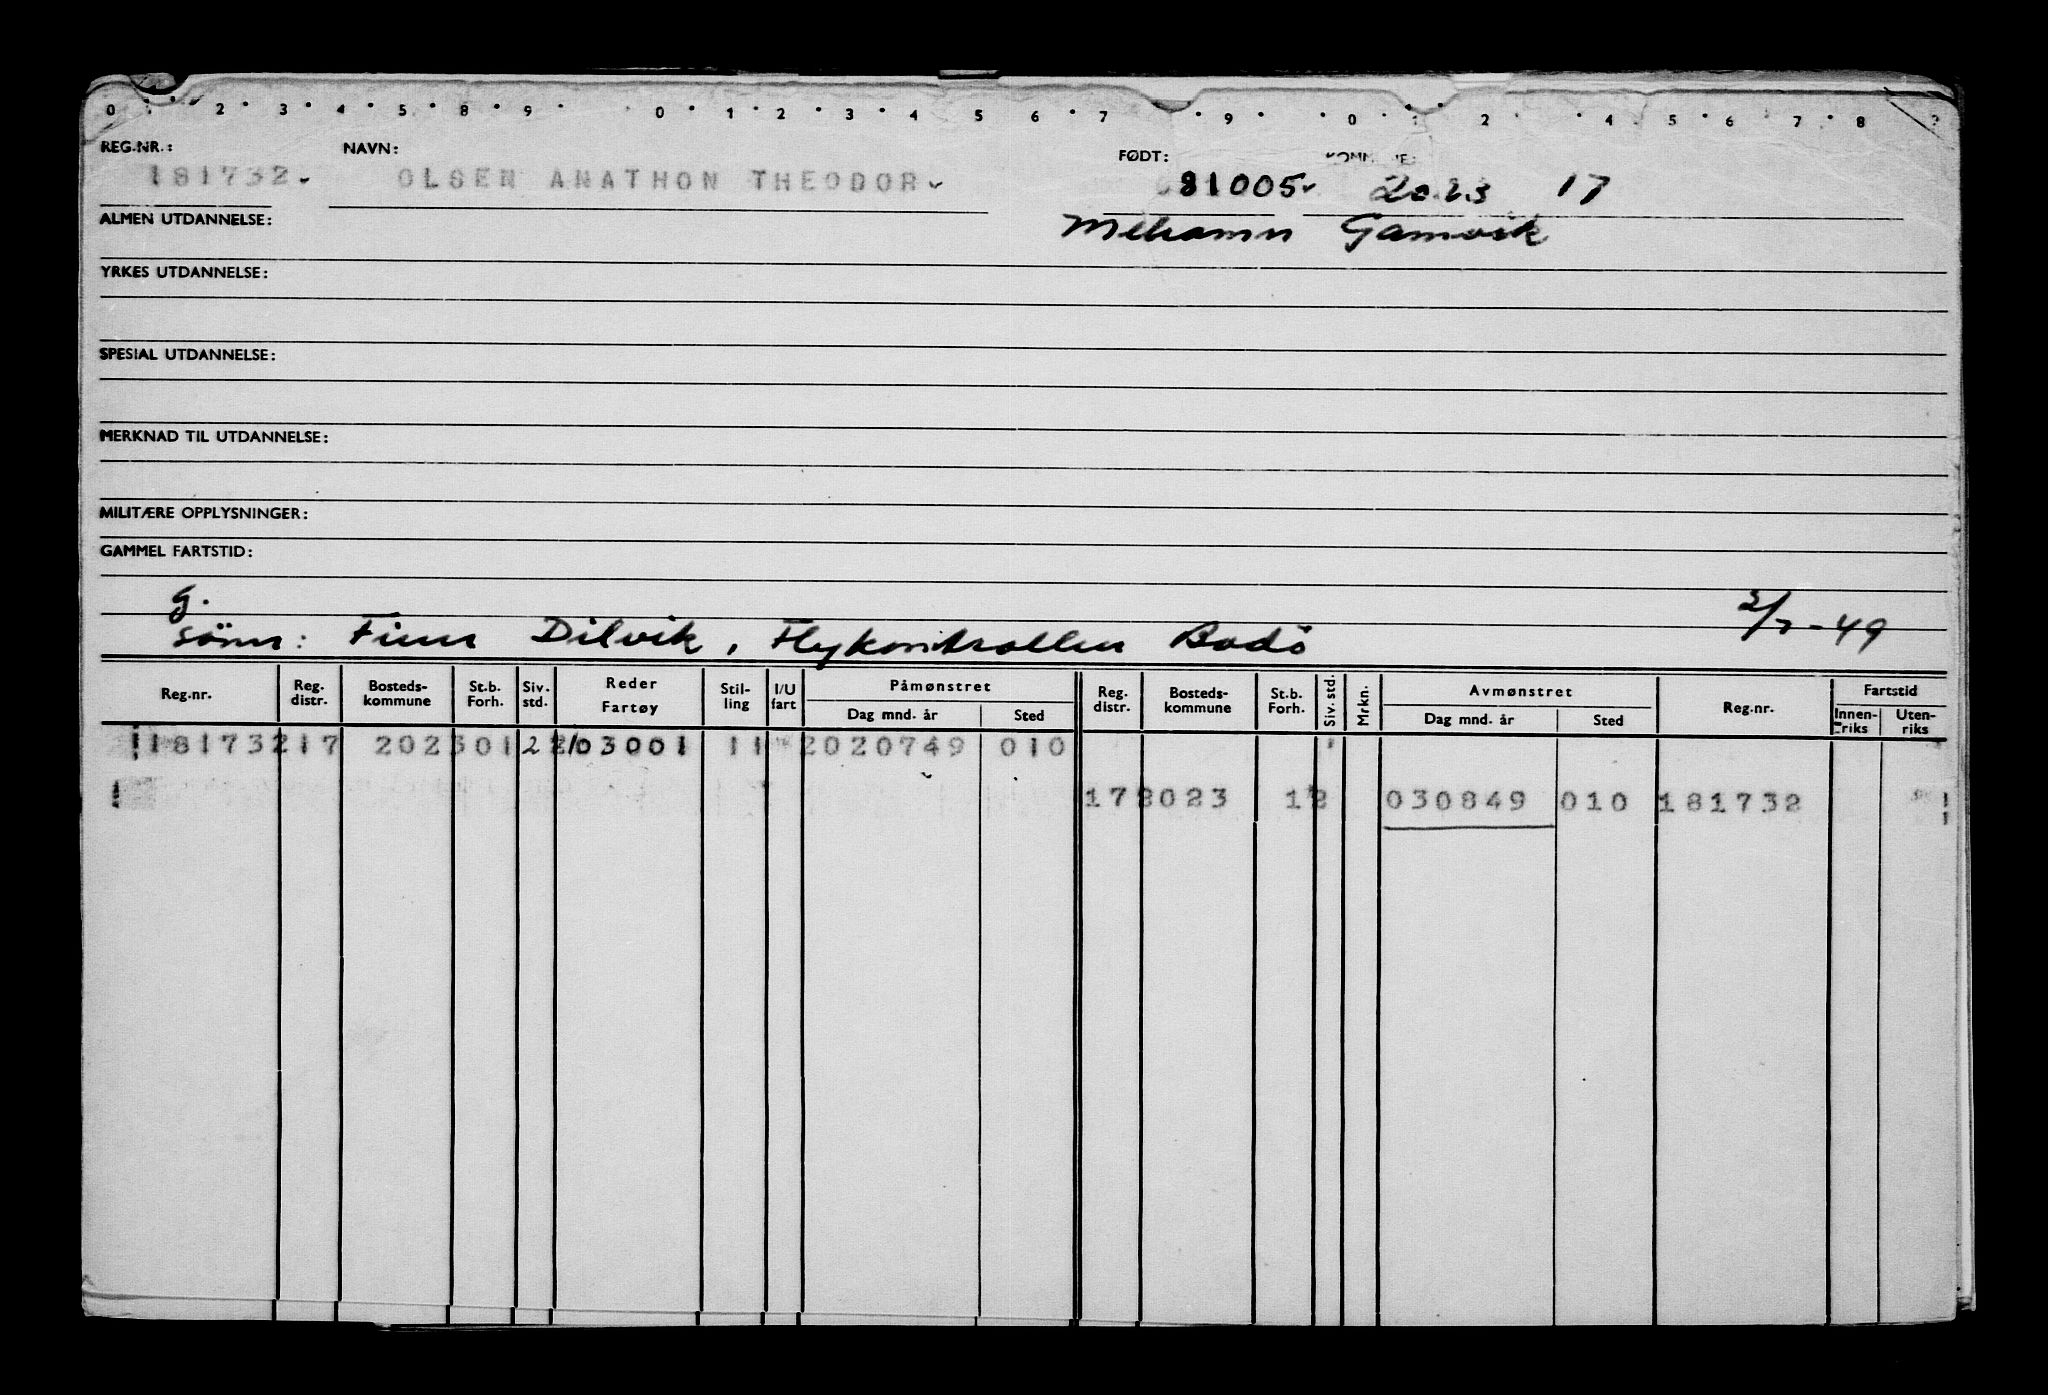 0 2 3 4 5 8 9 0 1 2 3 4 5 6 7 9 0 2 4 5 6 7 8
REG.NR.: NAVN: FØDT:
181732 OLSEN ANATHON THEODOR 81005 2023 17
ALMEN UTDANNELSE: Mehamn Gamvik
YRKES UTDANNELSE:
SPESIAL UTDANNELSE:
MERKNAD TIL UTDANNELSE:
MILITÆRE OPPLYSNINGER:
GAMMEL FARTSTID:
g.
sönn: Finn Dilvik, Flykontrollen Bodö 2/7-49
Reg.nr. Reg. distr. Bosteds-kommune St.b. Forh. Siv. std. Reder Fartøy Stil-ling I/U fart Påmønstret Dag mnd. år Sted Reg. distr. Bosteds-kommune St.b. Forh. Siv. std. Mrkn. Avmønstret Dag mnd. år Sted Reg.nr. Fartstid Innen-riks Uten-riks
181732 17 2023 01 2 03001 11 2020749 010
17 2023 1 2 030849 010 181732